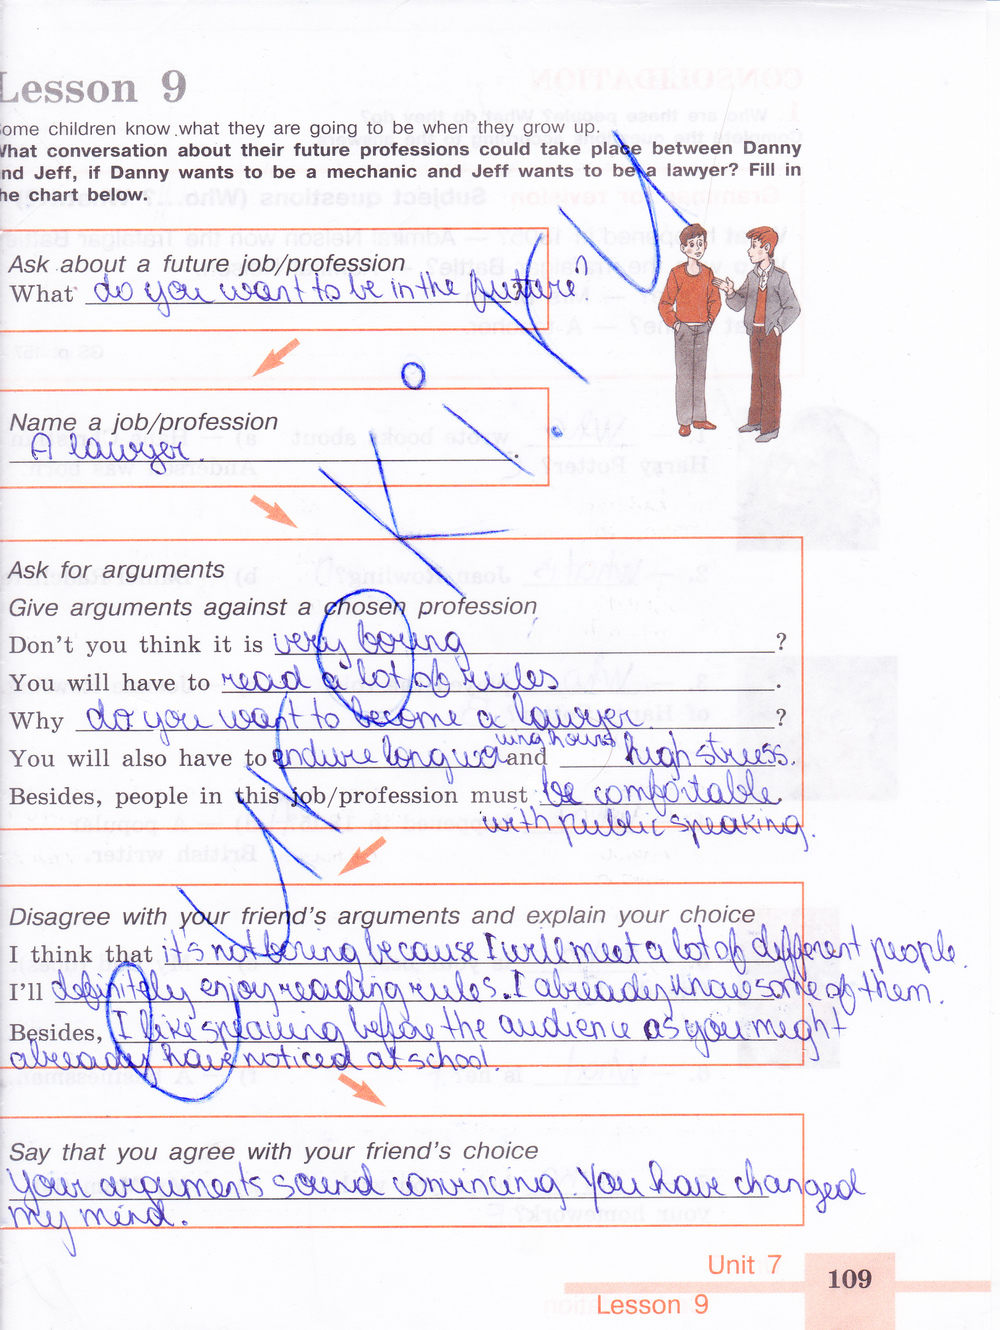 Lesson 9
ome children know what they are going to be when they grow up.
What conversation about their future professions could take place between Danny
nd Jeff, if Danny wants to be a mechanic and Jeff wants to be a lawyer? Fill in
he chart below.
Ask about a future job/profession
What do you want to be in the future?
Name a job/profession
A lawyer.
Ask for arguments
Give arguments against a chosen profession
Don't you think it is very boring ?
You will have to read a lot of rules .
Why do you want to become a lawyer. ?
You will also have to endure long working hours and high stress.
Besides, people in this job/profession must be comfortable
with public speaking.
Disagree with your friend's arguments and explain your choice
I think that it's not boring because I will meet a lot of different people.
I'll definitely enjoy reading rules. I already know some of them.
Besides, I like speaking before the audience as you might
already have noticed at school.
Say that you agree with your friend's choice
Your arguments sound convincing. You have changed
my mind.
Unit 7
109
Lesson 9